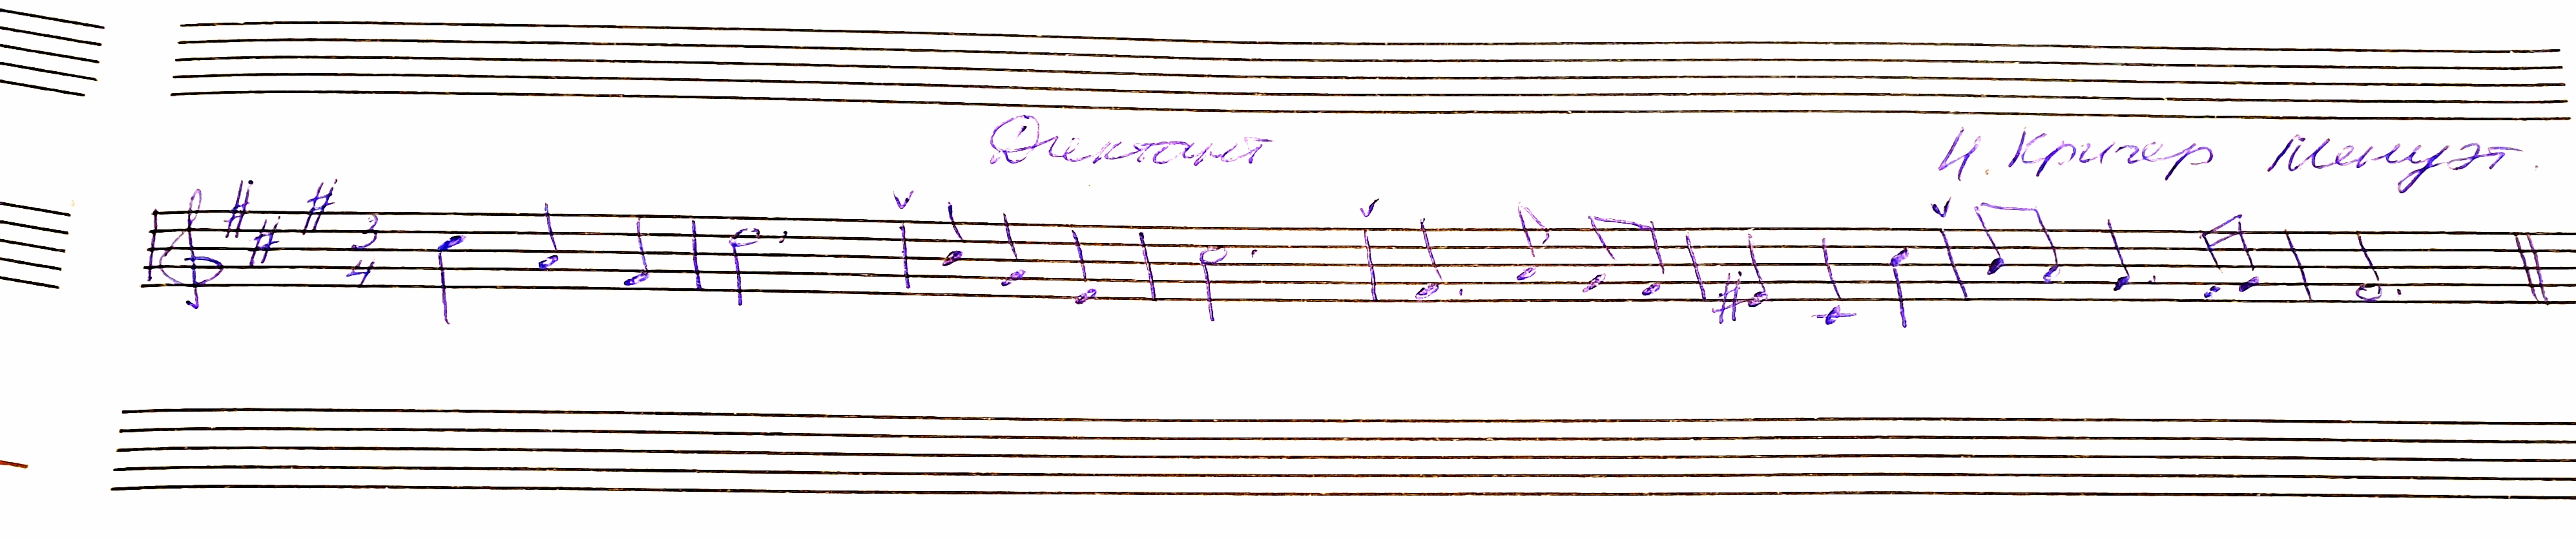 Диктант
И. Кригер Менуэт.
3
4